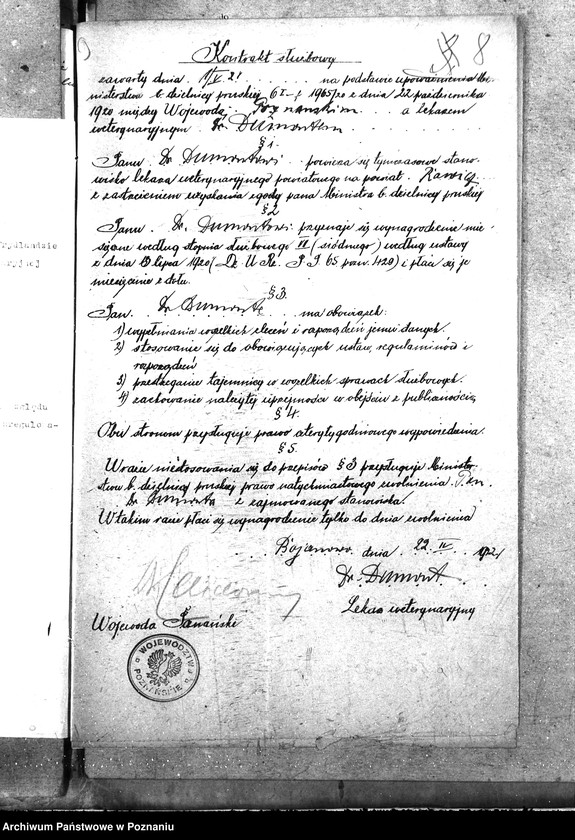 8
Kontrakt służbowy
zawarty dnia 1/V 21 na podstawie upoważnienia Mi-
nisterstwa b. dzielnicy pruskiej 1965/20 z dnia 22 października
1920 między Wojewodą Poznańskim a lekarzem
weterynaryjnym Dr. Dumontem
§ 1.
Panu Dr. Dumontowi powierza się tymczasowe stano-
wisko lekarza weterynaryjnego powiatowego na powiat Rawicz
z zastrzeżeniem wyrażania zgody pana Ministra b. dzielnicy pruskiej
§ 2
Panu Dr. Dumontowi przyznaje się wynagrodzenie mie-
sięczne według stopnia służbowego VII (siódmego) według ustawy
z dnia 13 lipca 1920 (Dz. U. Rz. P. 65 poz. 429) i płaci się je
miesięcznie z dołu.
§ 3.
Pan Dr. Dumont ma obowiązek:
1) wypełniania wszelkich zleceń i rozporządzeń jemu danych.
2) stosowanie się do obowiązujących ustaw, regulaminów i
rozporządzeń
3) przestrzeganie tajemnicy w wszelkich sprawach służbowych.
4) zachowanie należytej uprzejmości w obejściu z publicznością
§ 4.
Obu stronom przysługuje prawo czterytygodniowego wypowiedzenia.
§ 5.
W razie niestosowania się do przepisów § 3 przysługuje Minister-
stwu b. dzielnicy pruskiej prawo natychmiastowego zwolnienia Pan
Dr. Dumonta z zajmowanego stanowiska.
W takim razie płaci się wynagrodzenie tylko do dnia zwolnienia
Bojanowo dnia 22 IV 1921
Dr. Dumont
Lekarz weterynaryjny
Wojewoda Poznański
WOJEWÓDZTWO POZNAŃSKIE
Archiwum Państwowe w Poznaniu